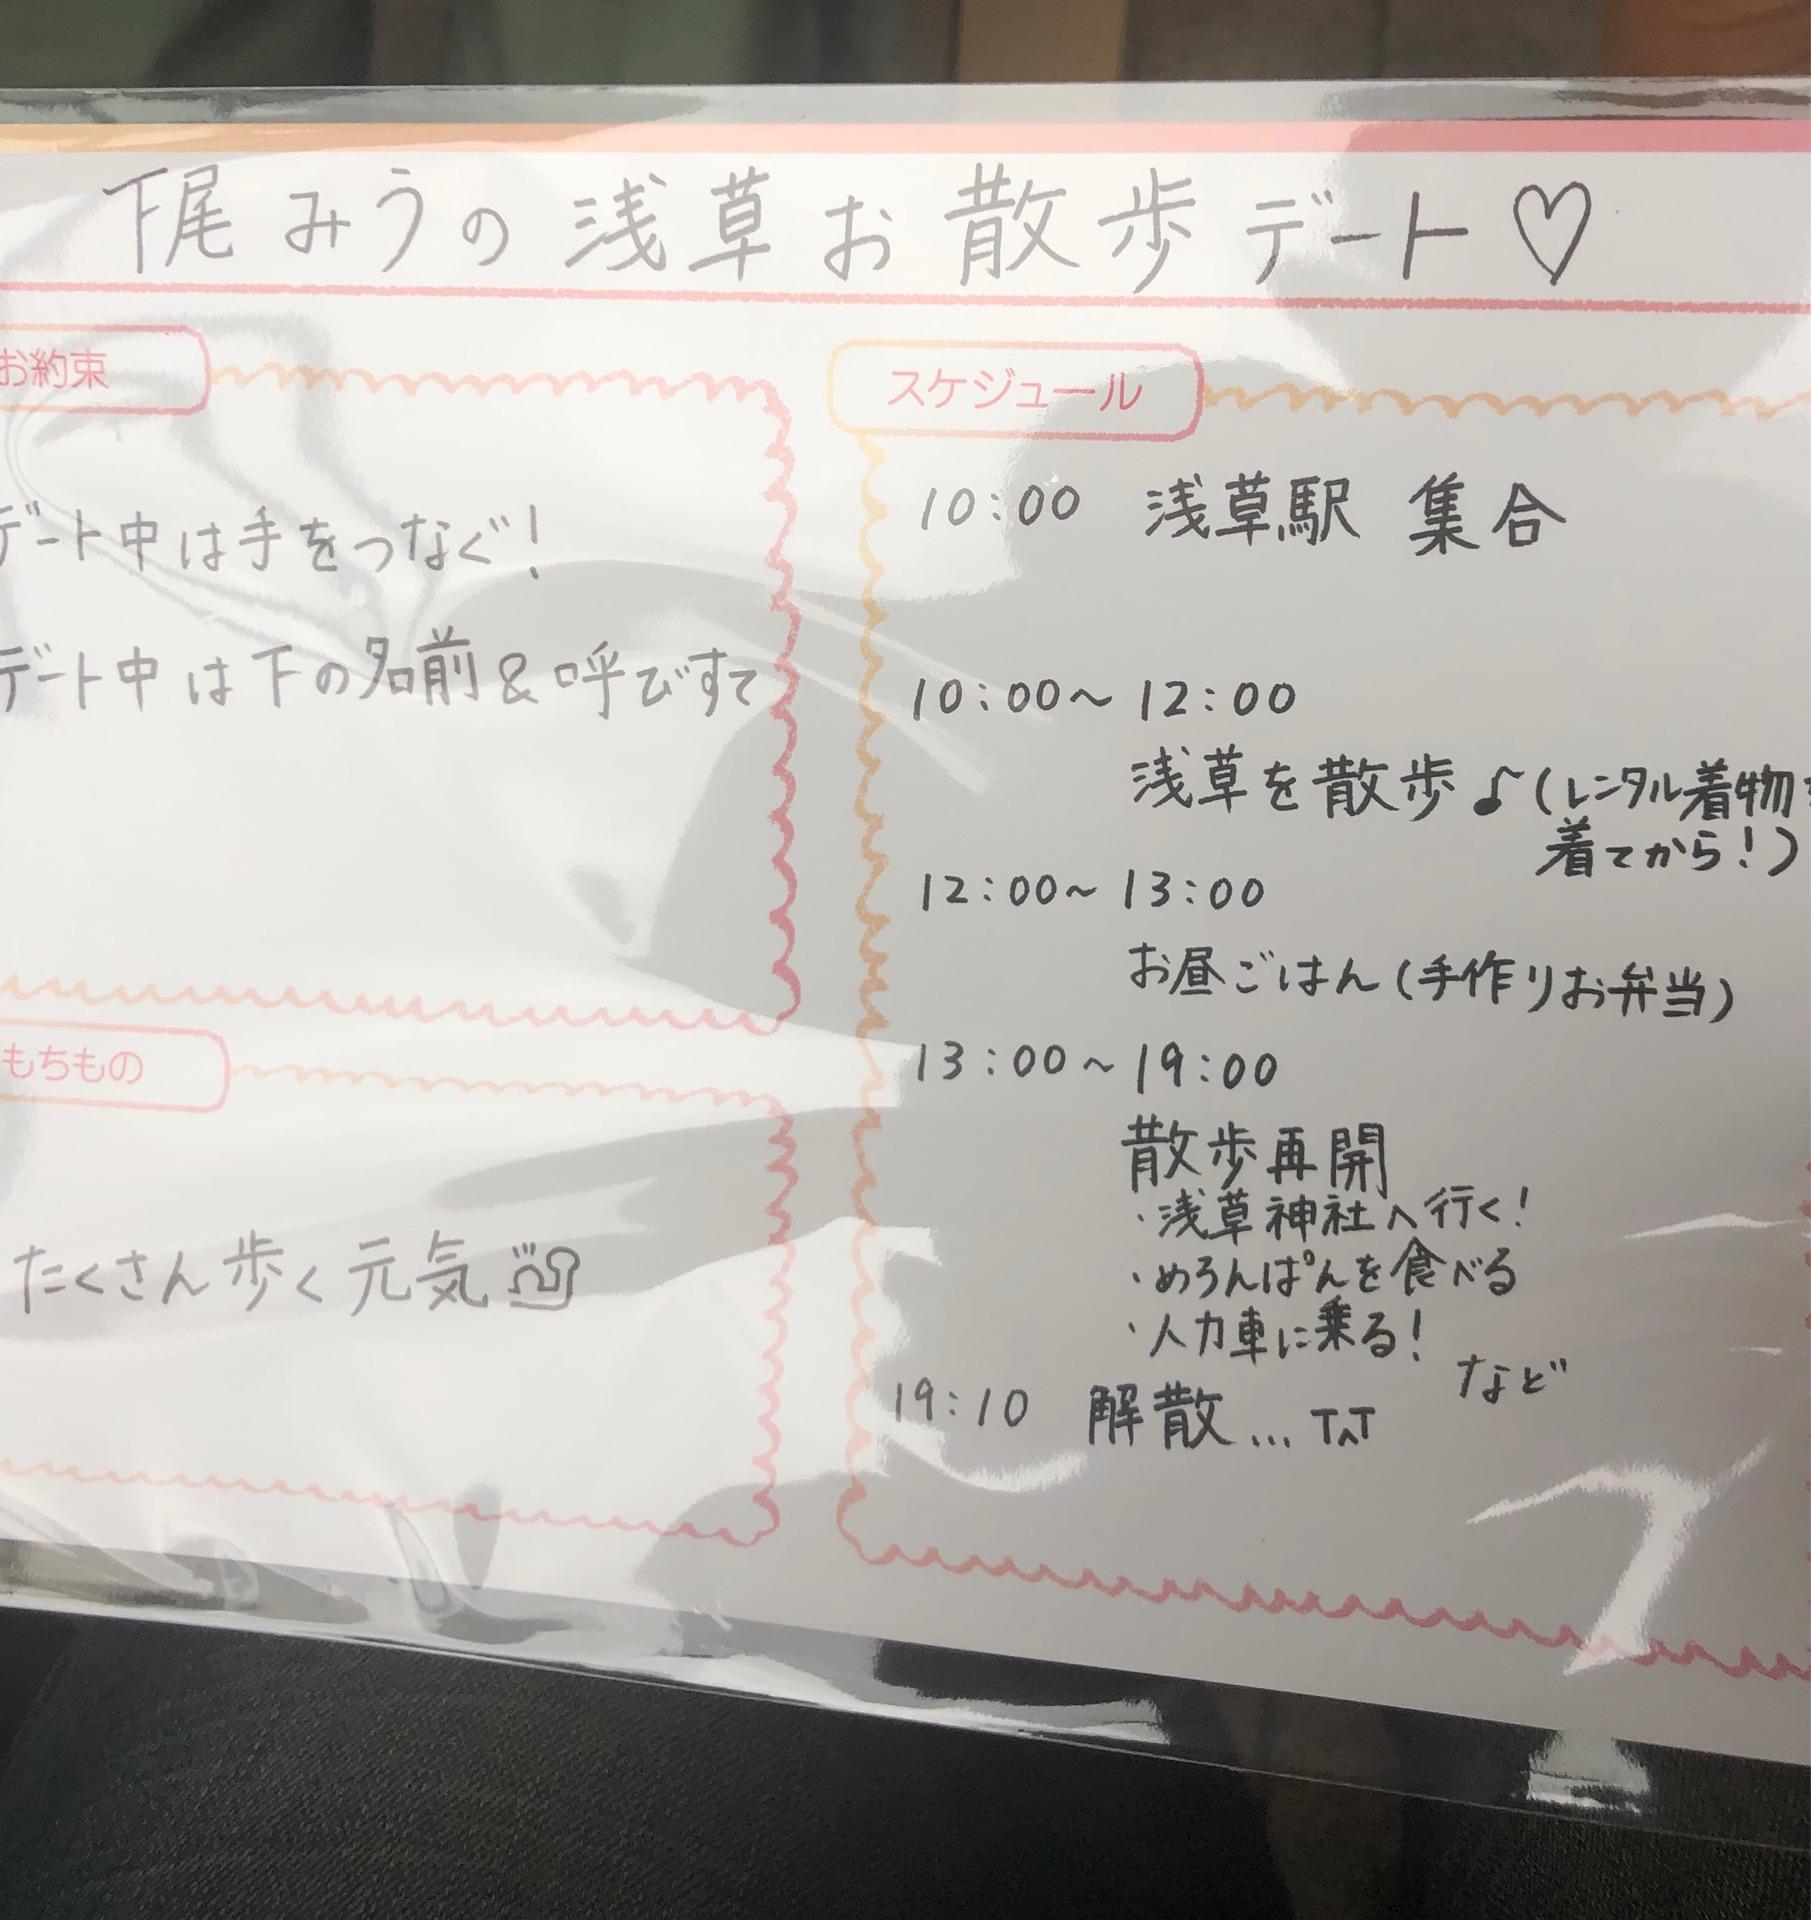 下尾みうの浅草お散歩デート♡
お約束
デート中は手をつなぐ!
デート中は下の名前&呼びすて
もちもの
たくさん歩く元気
スケジュール
10:00 浅草駅 集合
10:00~12:00
浅草を散歩♪(レンタル着物を
着てから!)
12:00~13:00
お昼ごはん(手作りお弁当)
13:00~19:00
散歩再開
・浅草神社へ行く!
・めろんぱんを食べる
・人力車に乗る!
など
19:10 解散... T^T